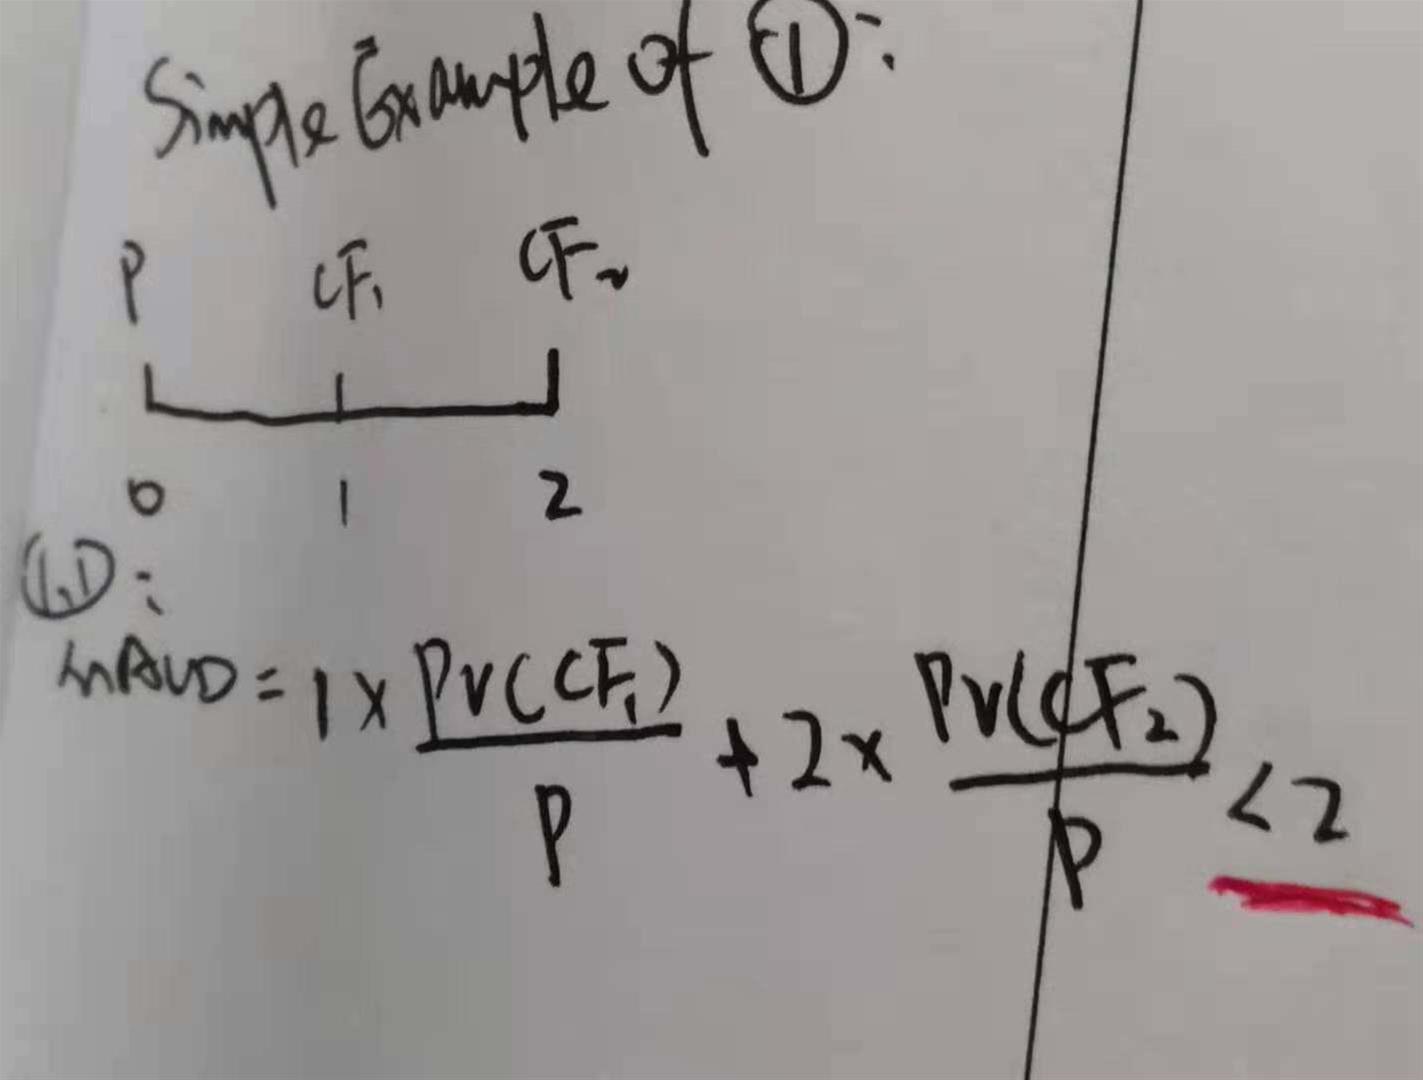 Simple Example of ①:
P CF₁ CF₂
0 1 2
(1.1):
MAUD = 1 × PV(CF₁)/P + 2 × PV(CF₂)/P < 2